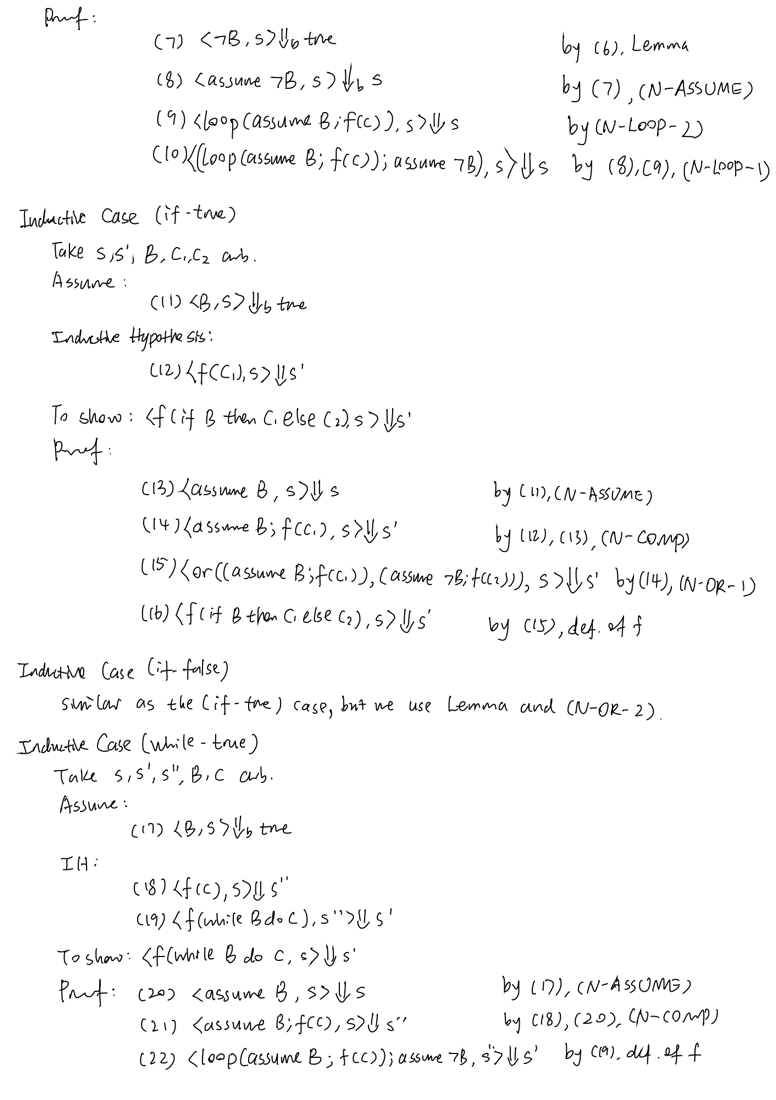 Proof:
(7) <¬B, s>⇓b true by (6), Lemma
(8) <assume ¬B, s>⇓b s by (7), (N-ASSUME)
(9) <loop(assume B; f(C)), s>⇓s by (N-LOOP-2)
(10) <(loop(assume B; f(C)); assume ¬B), s>⇓s by (8), (9), (N-LOOP-1)
Inductive Case (if-true)
Take s, s', B, C₁, C₂ arb.
Assume:
(11) <B, s>⇓b true
Inductive Hypothesis:
(12) <f(C₁), s>⇓s'
To show: <f(if B then C₁ else C₂), s>⇓s'
Proof:
(13) <assume B, s>⇓s by (11), (N-ASSUME)
(14) <assume B; f(C₁), s>⇓s' by (12), (13), (N-COMP)
(15) <or((assume B; f(C₁)), (assume ¬B; f(C₂))), s>⇓s' by (14), (N-OR-1)
(16) <f(if B then C₁ else C₂), s>⇓s' by (15), def. of f
Inductive Case (if-false)
similar as the (if-true) case, but we use Lemma and (N-OR-2).
Inductive Case (while-true)
Take s, s', s'', B, C arb.
Assume:
(17) <B, s>⇓b true
IH:
(18) <f(C), s>⇓s''
(19) <f(while B do C), s''>⇓s'
To show: <f(while B do C, s>⇓s'
Proof: (20) <assume B, s>⇓s by (17), (N-ASSUME)
(21) <assume B; f(C), s>⇓s'' by (18), (20), (N-COMP)
(22) <loop(assume B; f(C)); assume ¬B, s''>⇓s' by (19), def. of f